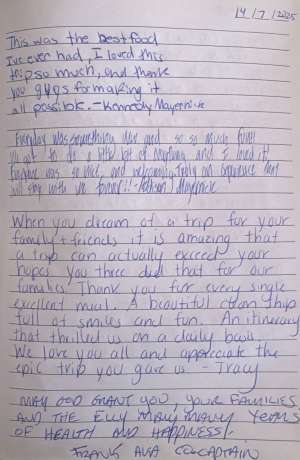 14/7/2025
This was the best food
I've ever had, I loved this
trip so much, and thank
you guys for making it
all possible. - Kennedy
Everyday was something new and so so much fun!
I got to do a little bit of everything and I loved it!
Everyone was so nice, and welcoming. Truly an experience that
will stay with me forever!! -
When you dream of a trip for your
family + friends it is amazing that
a trip can actually exceed your
hopes. You three did that for our
families! Thank you for every single
excellent meal. A beautiful clean ship
full of smiles and fun. An itinerary
that thrilled us on a daily basis.
We love you all and appreciate the
epic trip you gave us - Tracy
MAY GOD GRANT YOU, YOUR FAMILIES
AND THE ELLY MANY MANY YEARS
OF HEALTH AND HAPPINESS!
FRANK AKA COCAPTAIN